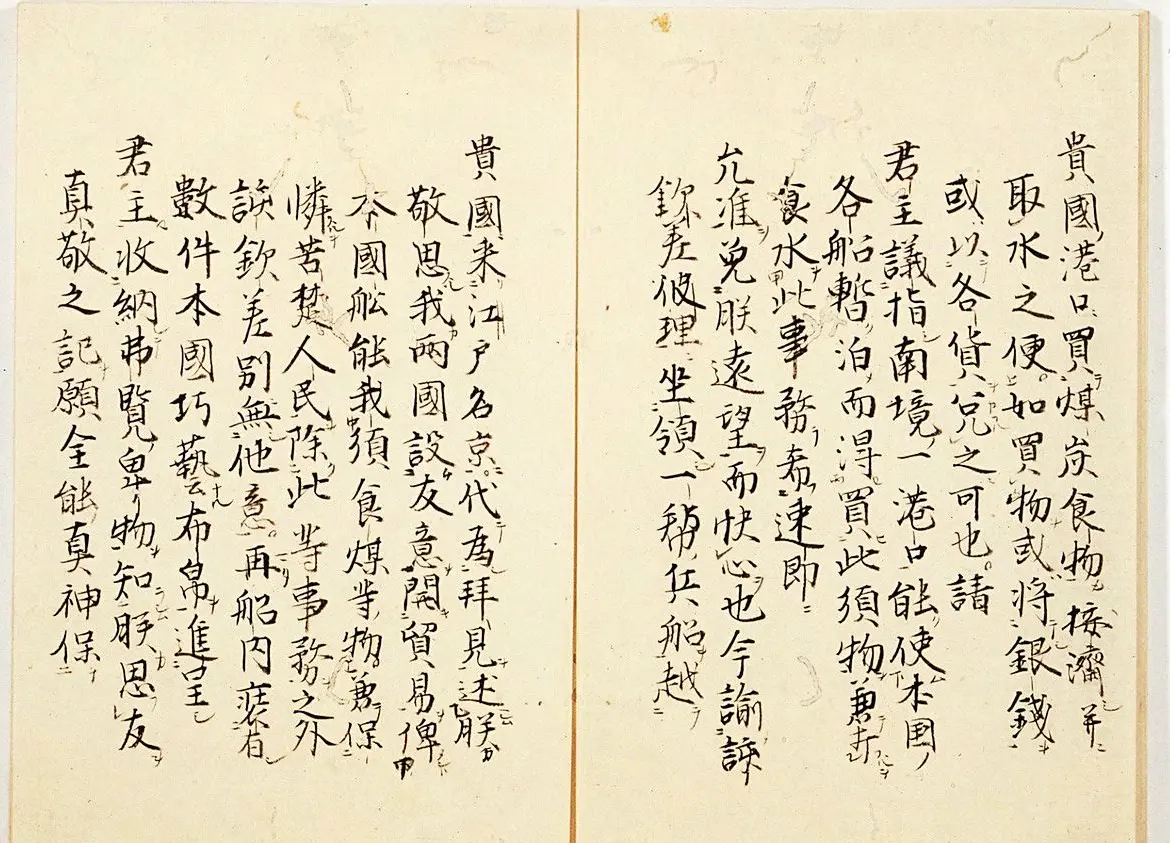 貴國港口買煤炭食物接濟并
取水之便如買物或將銀錢
或以各貨兌之可也請
君主議指南境一港口能使本国
各船暫泊而得買此須物兼討
食水此事務希速即
允准免朕遠望而快心也今諭諄
欽差彼理坐領一幇兵船越
貴國来江戸名京代為拜見述朕
敬思我兩國設友意開貿易俾
本國舩能我須食煤等物兼保
憐苦楚人民除此等事務之外
諄欽差別無他意再船内裝有
數件本國巧藝布帛進呈
君主收納弗覽卑物知朕思友
真敬之記願全能真神保